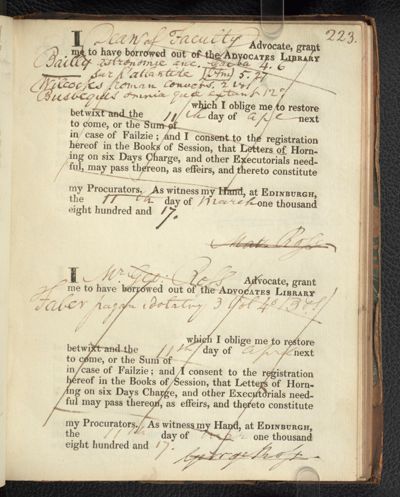 223.
I Dean of Faculty Advocate, grant
me to have borrowed out of the ADVOCATES LIBRARY
Bailly astronomie anc. 4. 6
sur l'atlantide 5. 27
Wilcocks Roman convers. 2 vols
Busbequis omnia quae extant 12º
which I oblige me to restore
betwixt and the 11th day of apl next
to come, or the Sum of
in case of Failzie; and I consent to the registration
hereof in the Books of Session, that Letters of Horn-
ing on six Days Charge, and other Executorials need-
ful, may pass thereon, as effeirs, and thereto constitute
my Procurators. As witness my Hand, at EDINBURGH,
the 11th day of March one thousand
eight hundred and 17.
Mat. Ross
I Mr Geo: Ross Advocate, grant
me to have borrowed out of the ADVOCATES LIBRARY
Faber pagan idolatry 3 vol 4º
which I oblige me to restore
betwixt and the 11th day of april next
to come, or the Sum of
in case of Failzie; and I consent to the registration
hereof in the Books of Session, that Letters of Horn-
ing on six Days Charge, and other Executorials need-
ful may pass thereon, as effeirs, and thereto constitute
my Procurators. As witness my Hand, at EDINBURGH,
the 11th day of one thousand
eight hundred and 17.
George Ross